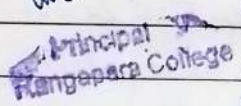 Principal
Rangapara College